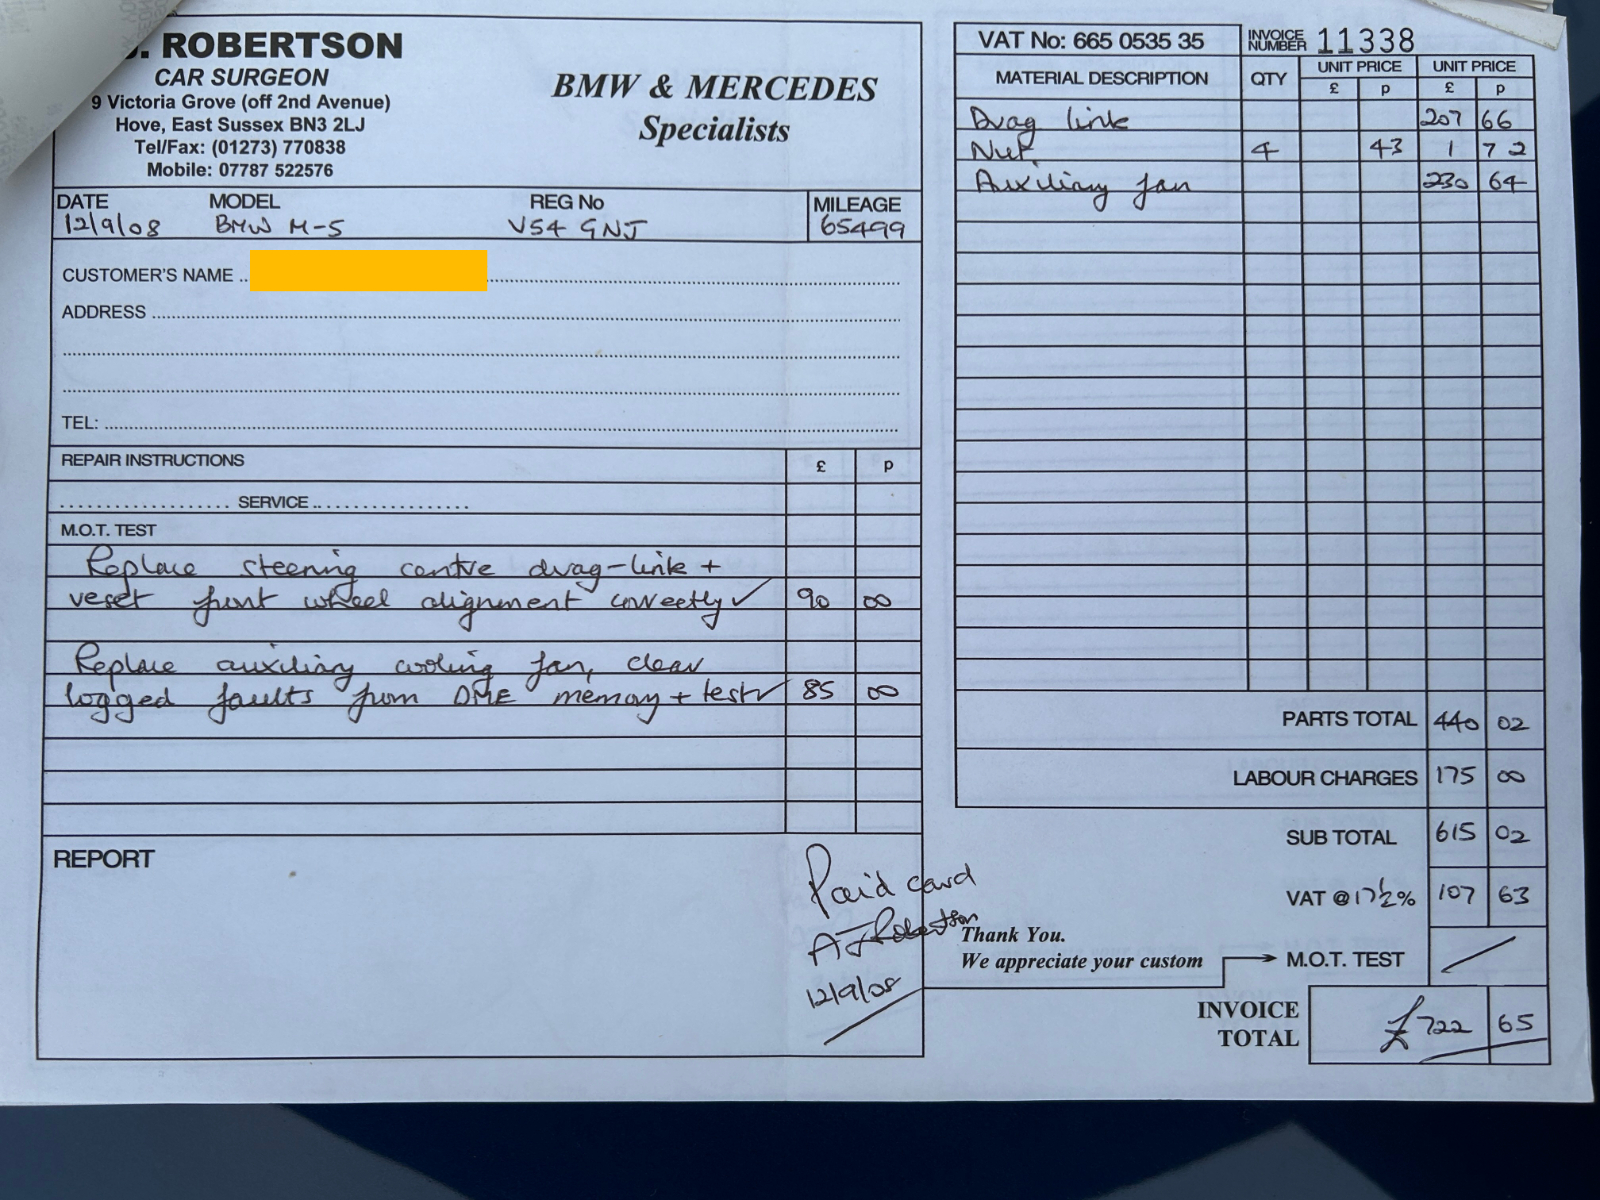 . ROBERTSON
CAR SURGEON
9 Victoria Grove (off 2nd Avenue)
Hove, East Sussex BN3 2LJ
Tel/Fax: (01273) 770838
Mobile: 07787 522576
BMW & MERCEDES
Specialists
DATE MODEL REG No MILEAGE
12/9/08 BMW M-5 V54 GNJ 65499
CUSTOMER'S NAME
ADDRESS
TEL:
REPAIR INSTRUCTIONS £ p
SERVICE
M.O.T. TEST
Replace steering centre drag-link +
reset front wheel alignment correctly ✓ 90 00
Replace auxiliary cooling fan, clear
logged faults from DME memory + test ✓ 85 00
REPORT
Paid card
A J Robertson
12/9/08
VAT No: 665 0535 35 INVOICE NUMBER 11338
MATERIAL DESCRIPTION QTY UNIT PRICE UNIT PRICE
£ p £ p
Drag link 207 66
Nut 4 43 1 72
Auxiliary fan 230 64
PARTS TOTAL 440 02
LABOUR CHARGES 175 00
SUB TOTAL 615 02
VAT @ 17½% 107 63
Thank You.
We appreciate your custom
M.O.T. TEST /
INVOICE
TOTAL £722 65